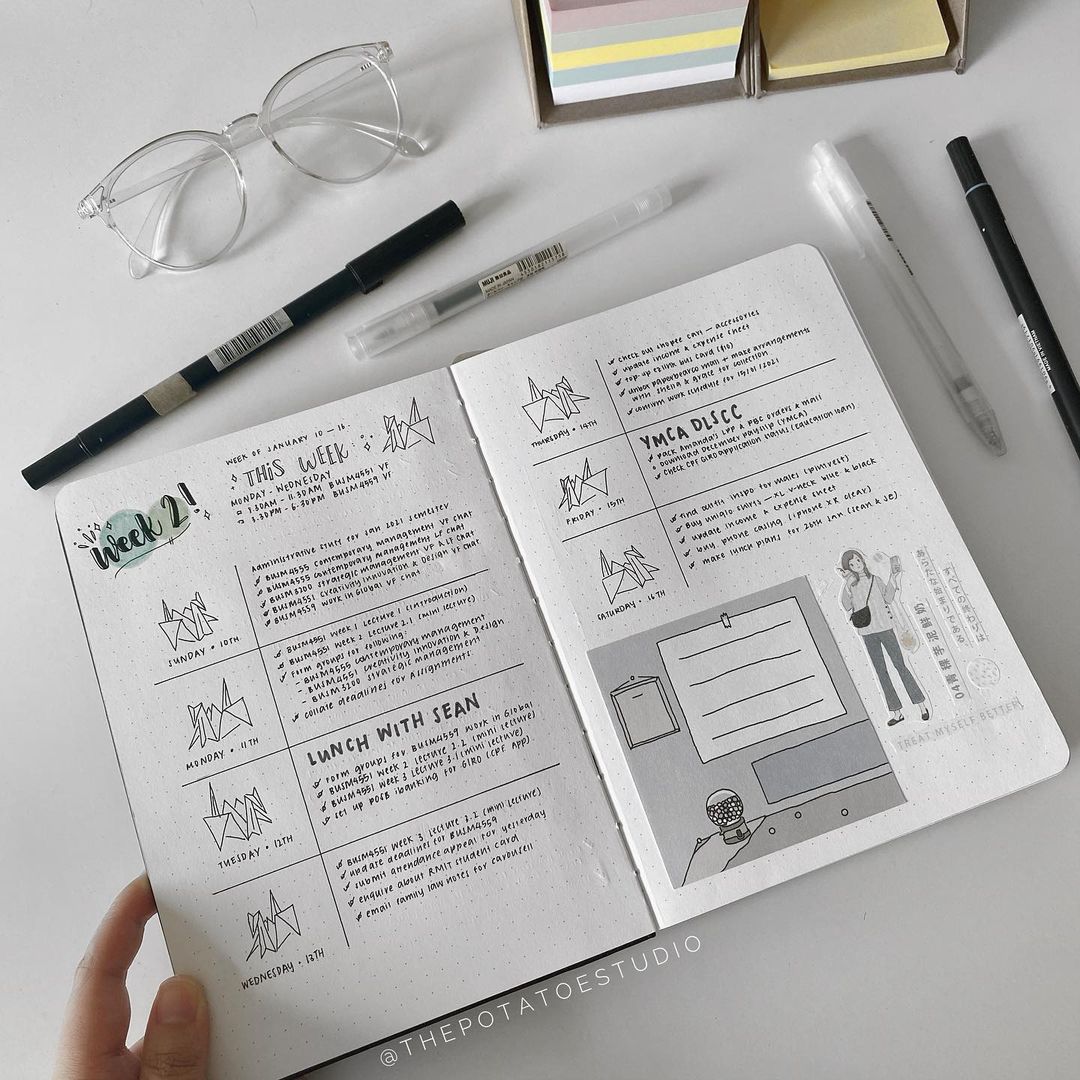 WEEK OF JANUARY 10-16.
THIS WEEK
MONDAY - WEDNESDAY
9.30AM - 11.30AM BUSM4551 VF
3.30PM - 6.30PM BUSM4559 VF
Week 2!
SUNDAY • 10TH
Administrative stuff for Jan 2021 Semester
BUSM4555 Contemporary management VF chat
BUSM4555 Contemporary management LT chat
BUSM3200 Strategic management VF & LT chat
BUSM4551 Creativity Innovation & Design VF chat
BUSM4559 Work in Global VF chat
MONDAY • 11TH
BUSM4551 Week 1 Lecture 1 (introduction)
BUSM4551 Week 2 Lecture 2.1 (mini lecture)
Form groups for following:
- BUSM4555 Contemporary management
- BUSM4551 Creativity Innovation & Design
- BUSM3200 Strategic management
Collate deadlines for Assignments.
TUESDAY • 12TH
LUNCH WITH SEAN
Form groups for BUSM4559 Work in Global
BUSM4551 Week 2 Lecture 2.2 (mini lecture)
BUSM4551 Week 3 Lecture 3.1 (mini lecture)
Set up POSB ibanking for GIRO (CPF App)
WEDNESDAY • 13TH
BUSM4551 Week 3 Lecture 3.2 (mini lecture)
update deadlines for BUSM4559
submit attendance appeal for yesterday
enquire about RMIT student card
email family law notes for carousell
THURSDAY • 14TH
check out shopee cart - accessories
update income & expense sheet
top-up ezlink bus card ($10)
unbox paperbearco mail + make arrangements
with Sheila & Grace for collection
confirm work schedule for 15/01/2021
FRIDAY • 15TH
YMCA DLSCC
Pack Amanda's LPP & PBC orders & mail
Download December payslip (YMCA)
Check CPF GIRO application status (education loan)
SATURDAY • 16TH
find outfit inspo for males (pinterest)
Buy uniqlo shirt - XL V-neck blue & black
update income & expense sheet
buy phone casing (iphone XR clear)
make lunch plans for 20th Jan (Sean & Je)
すべての終わりは、
あらたな始まりである。
04青稞手泥鲜奶
TREAT MYSELF BETTER
MUJI 無印良品
MADE IN JAPAN
MADE IN VIETNAM
@THEPOTATOESTUDIO